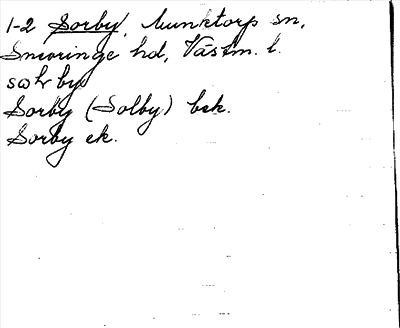 1-2 Sorby, Munktorp sn,
Snevringe hd, Västm. l.
sωƚr by
Sorby (Solby) bek.
Sorby ek.